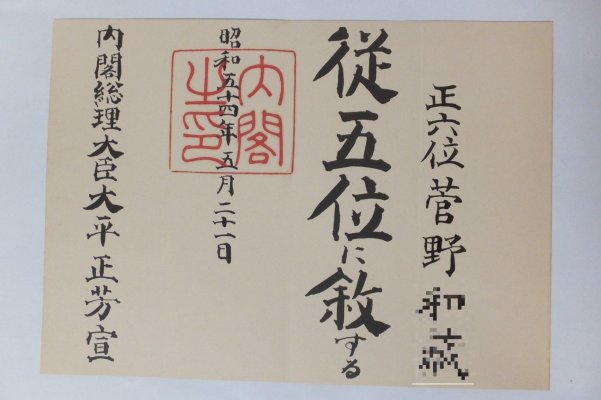 正六位菅野
従五位に敘する
昭和五十四年五月二十一日
内閣総理大臣大平正芳宣
内閣之印